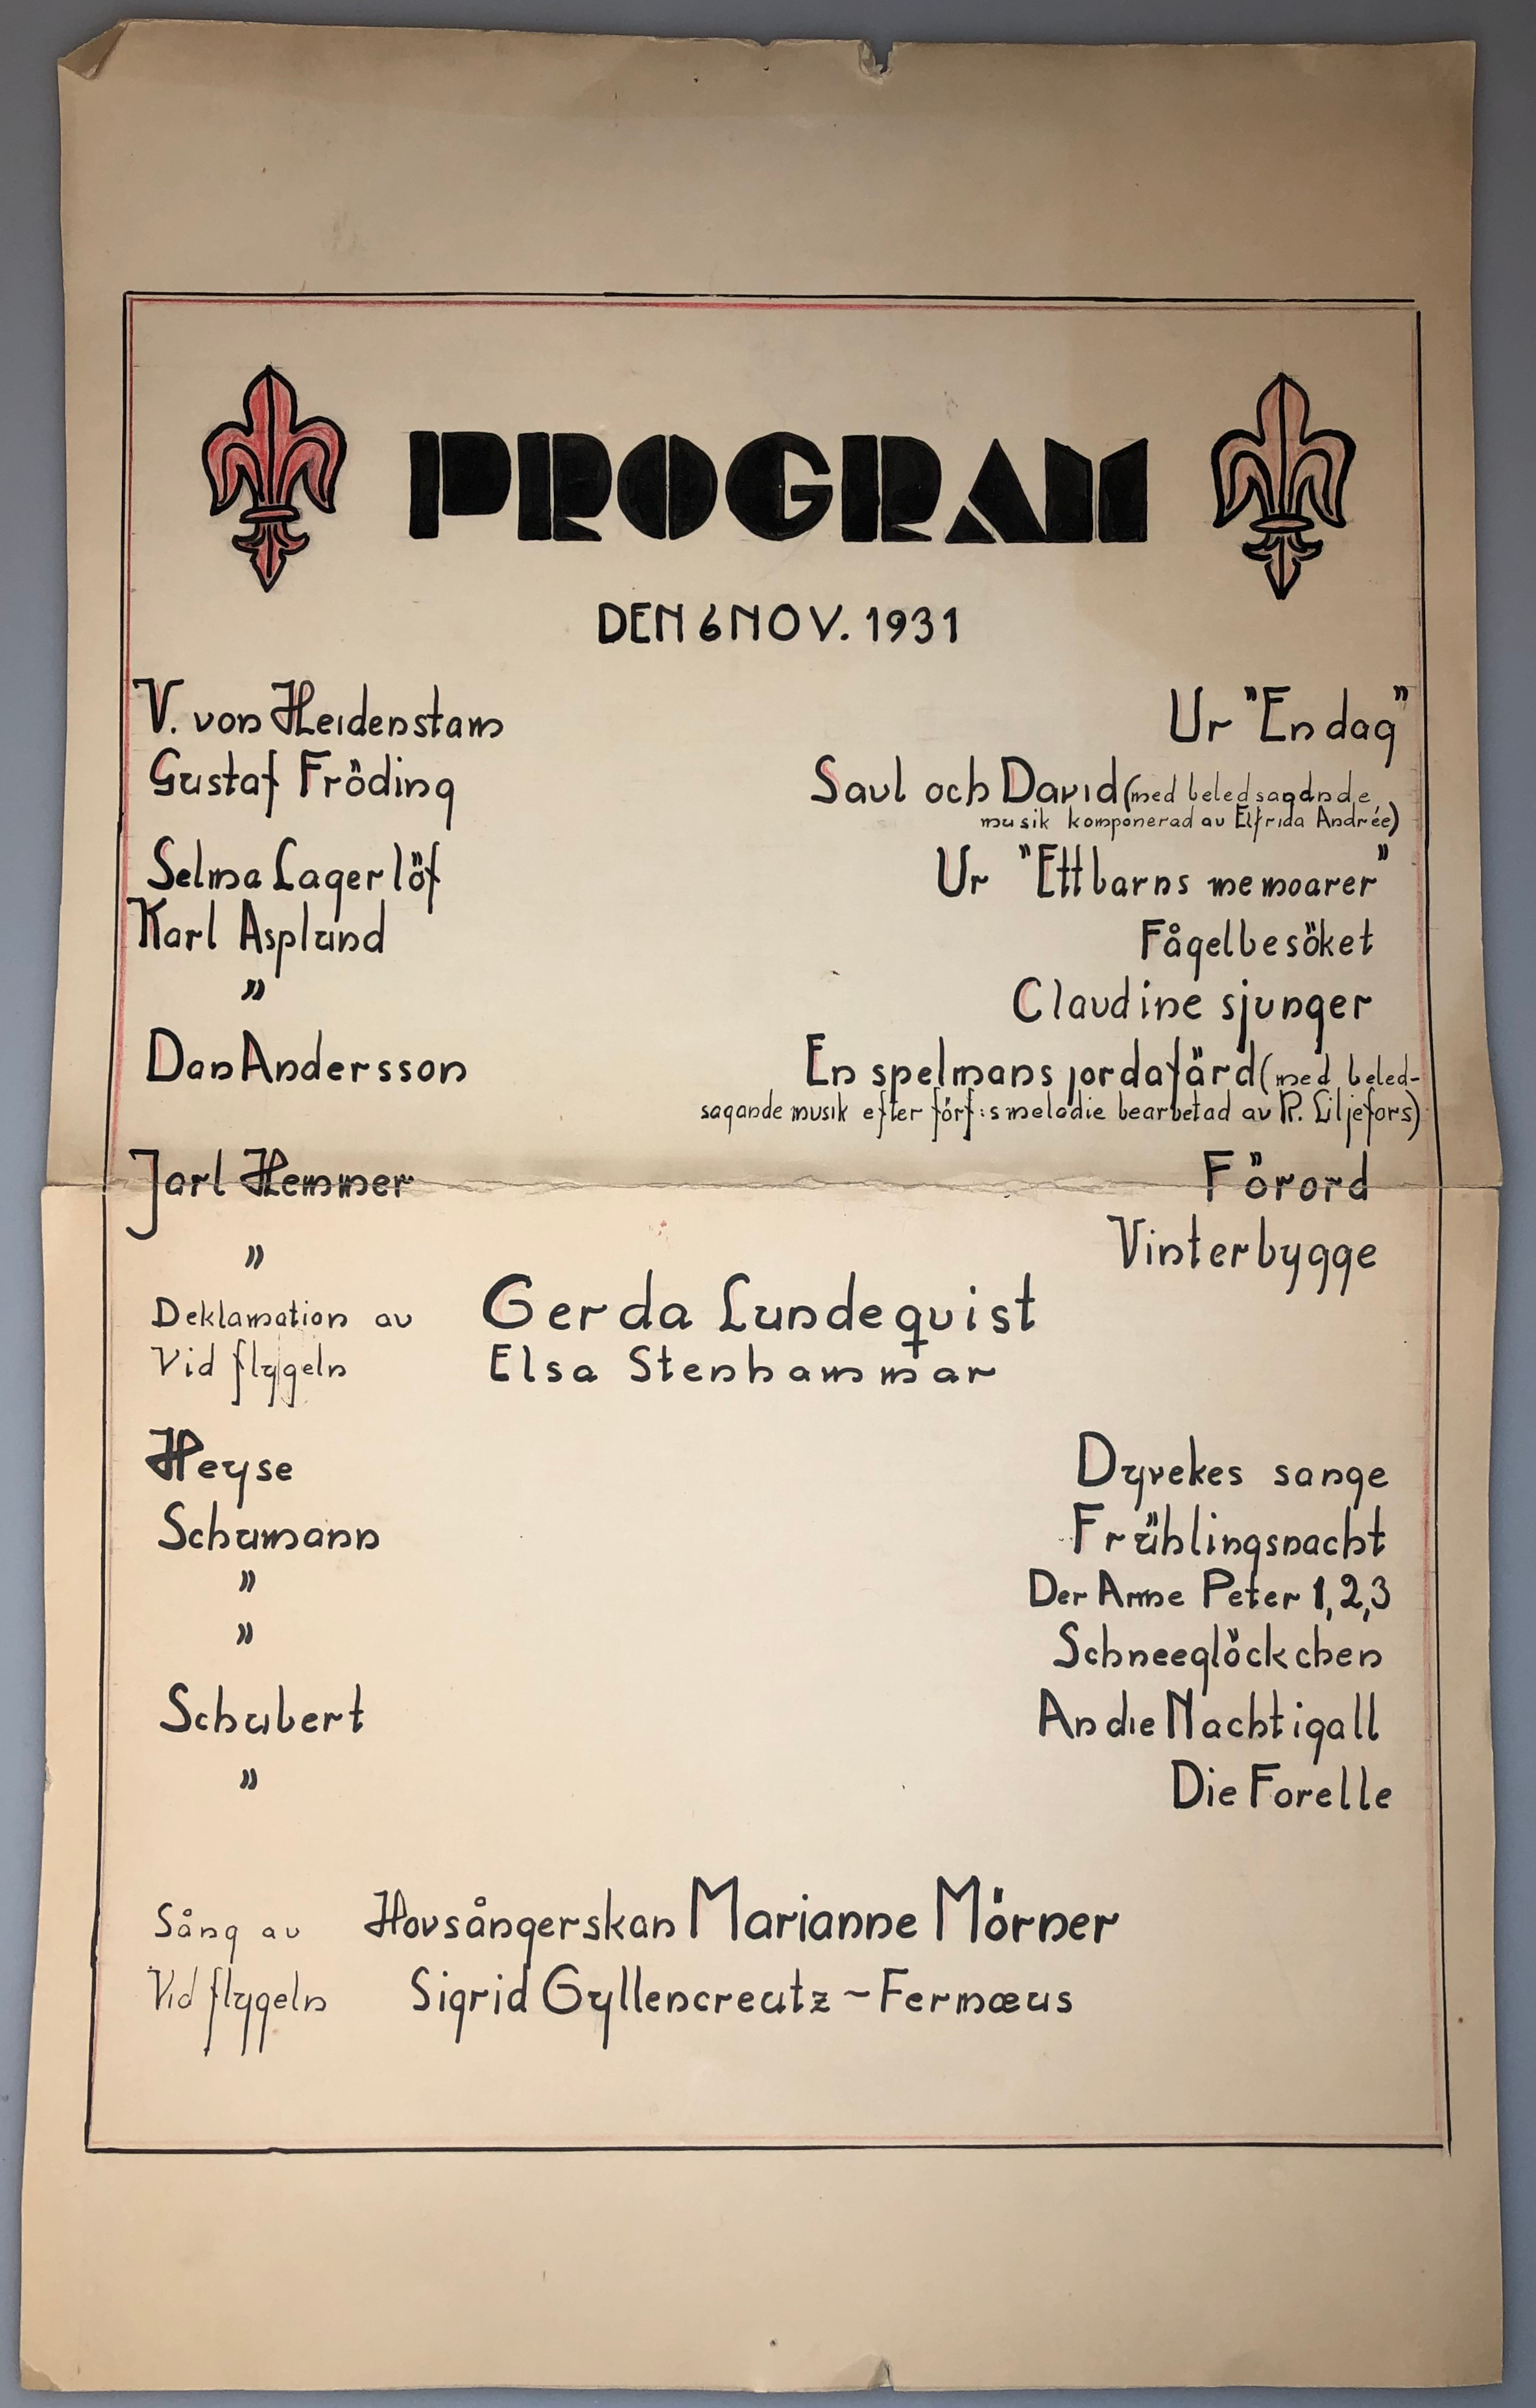 PROGRAM
DEN 6 NOV. 1931
V. von Heidenstam Ur "En dag"
Gustaf Fröding Saul och David (med beledsagande
musik komponerad av Elfrida Andrée)
Selma Lagerlöf Ur "Ett barns memoarer"
Karl Asplund Fågelbesöket
" Claudine sjunger
Dan Andersson En spelmans jordafärd (med beled-
sagande musik efter förf:s melodie bearbetad av R. Liljefors)
Jarl Hemmer Förord
" Vinterbygge
Deklamation av Gerda Lundequist
Vid flygeln Elsa Stenhammar
Heyse Dyvekes sange
Schumann Frühlingsnacht
" Der Arme Peter 1,2,3
" Schneeglöckchen
Schubert An die Nachtigall
" Die Forelle
Sång av Hovsångerskan Marianne Mörner
Vid flygeln Sigrid Gyllencreutz-Fermæus